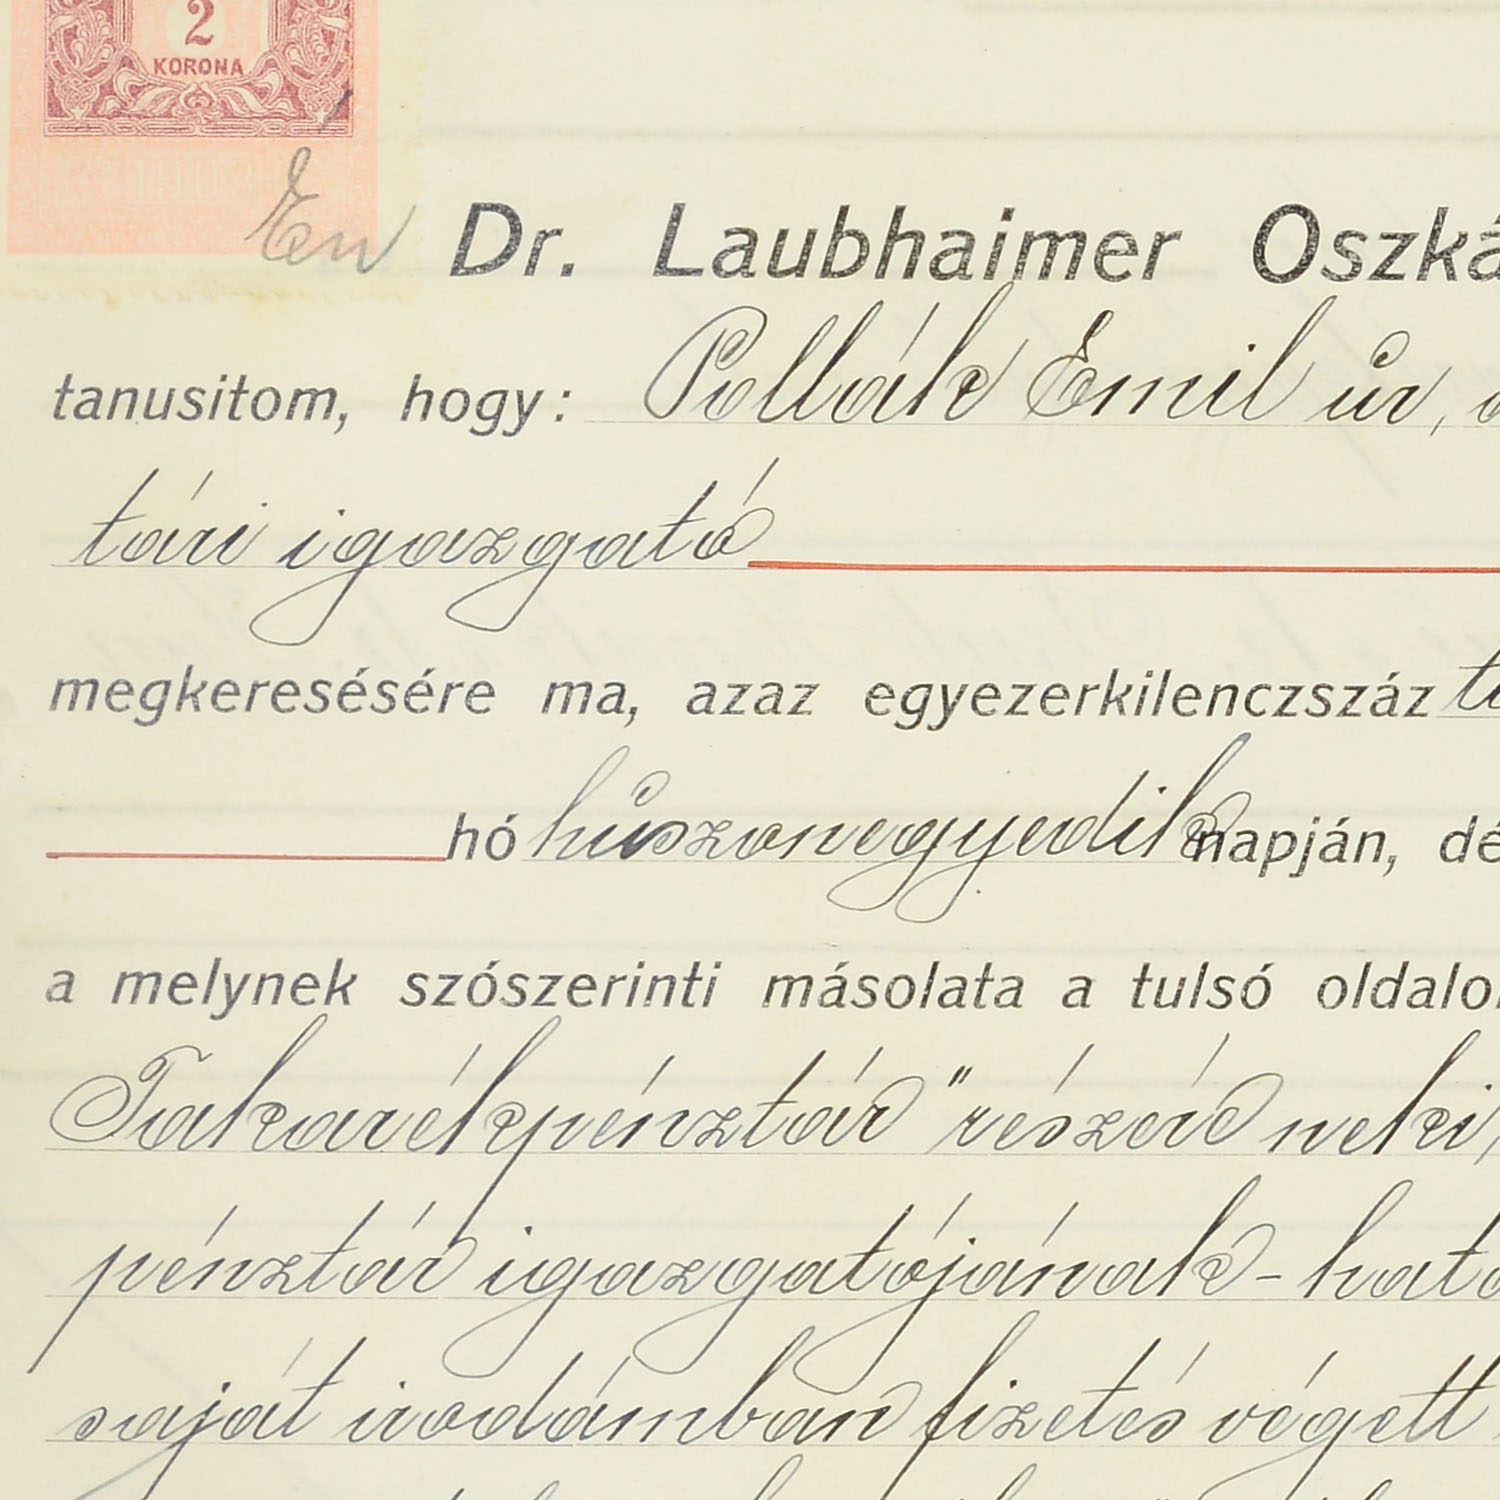 2
KORONA
Én Dr. Laubhaimer Oszká
tanusitom, hogy: Pollák Emil úr,
tári igazgató
megkeresésére ma, azaz egyezerkilenczszáz
hó húszonegyedik napján, dé
a melynek szószerinti másolata a tulsó oldalo
Takarékpénztár" részére neki,
pénztár igazgatójának - hat
saját irodámban fizetés végett